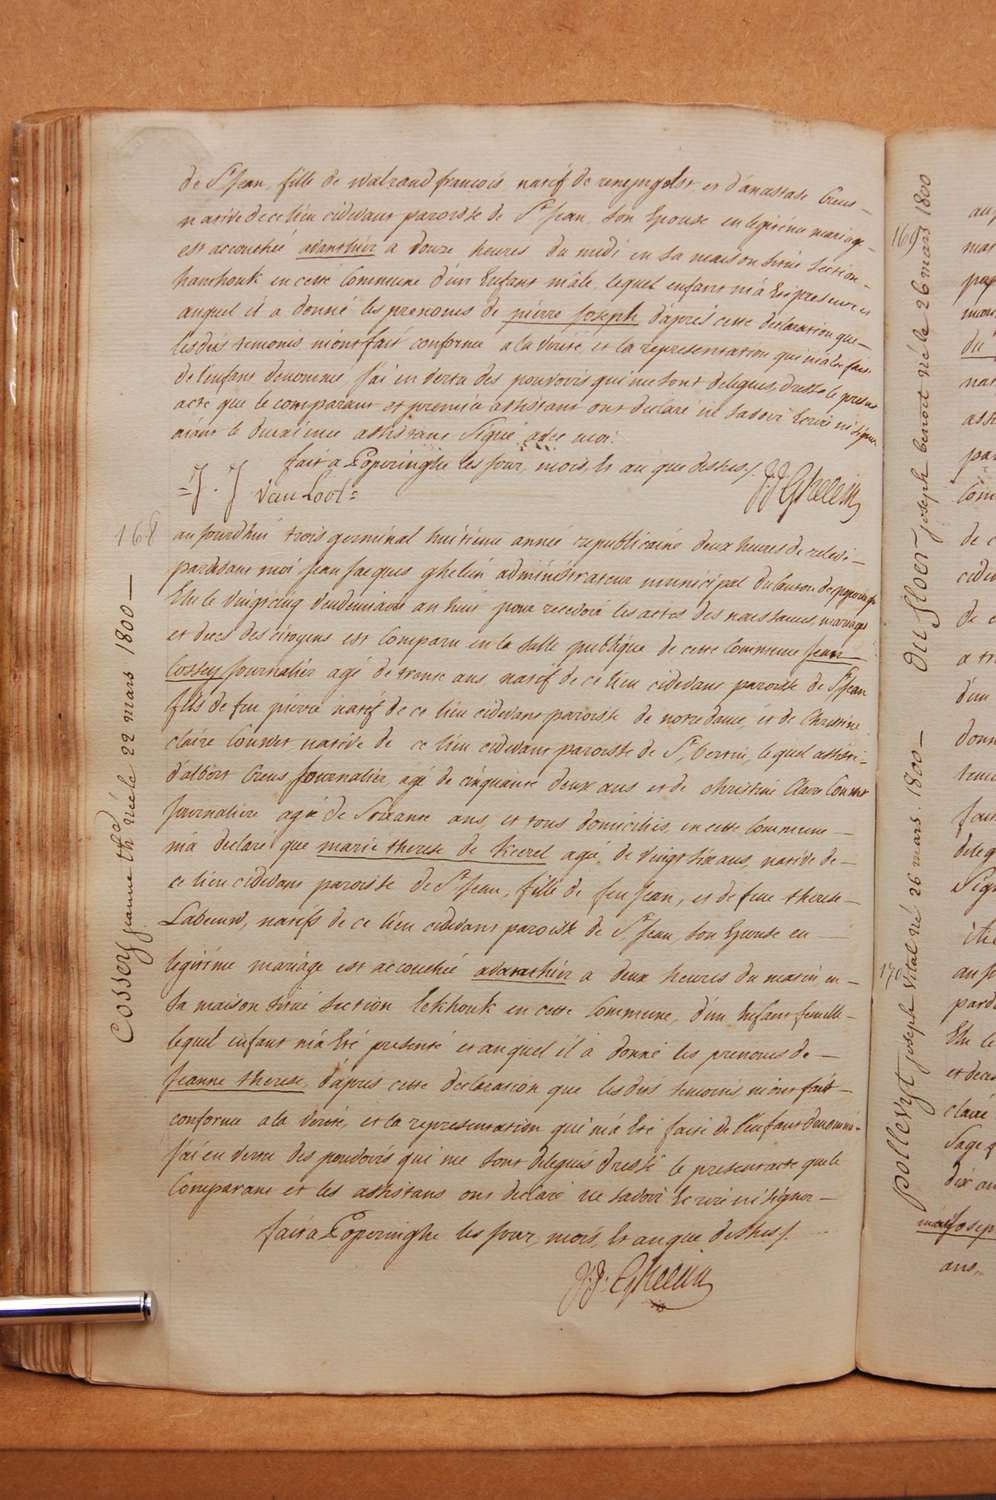 de St Jean, fille de walraud francois, natif de reninghelst et d'anastase Creus
native de ce lieu cidevant paroisse de St Jean, son Epouse en legitime mariage
est accouchée avanthier a douze heures du midi en sa maison située section
hamhouk en cette Commune d'un Enfant mâle, lequel enfant m'à été presenté et
auquel il à donné les prenoms de pierre Joseph d'après cette declaration que
lesdits temoins m'ont fait conforme a la verité et la representation qui m'à été faite
de l'enfant denommé, j'ai en vertu des pouvoirs qui me sont delegués dressé le present
acte que le comparant et premier assistant ont declaré ne savoir Ecrire ni signer
aiant le deuxieme assistant Signé avec moi.
fait à Poperinghe les jour, mois, & an que dessus /.
= J. J van Loo = J J Ghelein
168
aujourdhui trois germinal huitieme année republicaine deux heures de relevé
pardevant moi Jean Jacques ghelein administrateur municipal du Canton de poperinghe
Elu le vingtcinq vendemiaire an huit pour recevoir les actes des naissances, mariages
et deces des citoyens est comparu en la salle publique de cette commune Jean
Cossey Journalier agé de trente ans natif de ce lieu cidevant paroisse de St Jean
fils de feu pierre natif de ce lieu cidevant paroisse de notre dame, et de Christine
claire Couwet native de ce lieu cidevant paroisse de St Bertin, lequel assisté
d'albert Creus Journalier, agé de cinquante deux ans et de christine Claire Couwet
Journaliere agée de Soixante ans, et tous domiciliés en cette Commune
m'à declaré que marie therese de keerel agée de vingt six ans, native de
ce lieu cidevant paroisse de St Jean, fille de feu Jean, et de feue therese
Labeeuw, natifs de ce lieu cidevant paroisse de St Jean, son Epouse en
legitime mariage est accouchée avanthier a deux heures du matin en
sa maison située section Lekhouk en cette Commune, d'un Enfant femelle
lequel enfant m'à été presenté et auquel il à donné les prenoms de
Jeanne therese, d'après cette déclaration que lesdits temoins m'ont fait
conforme a la verité, et la representation qui m'à été faite de l'enfant denommé
j'ai en vertu des pouvoirs qui me sont delegués dressé le present acte que le
Comparant et les assistans ont declaré ne savoir Ecrire ni signer
fait à Poperinghe les jour, mois, & an que dessus /.
J. J. Ghelein
Cossey jeanne thse née le 22 mars 1800
169
du floer joseph benoit né le 26 mars 1800
170
pollevyt joseph vital né 26 mars 1800